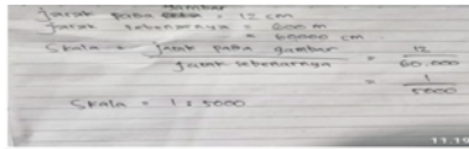 gambar
Jarak pada = 12 cm
Jarak sebenarnya = 600 m
= 60000 cm
Skala = Jarak pada gambar = 12
Jarak sebenarnya 60.000
= 1
5000
Skala = 1 : 5000
11.19